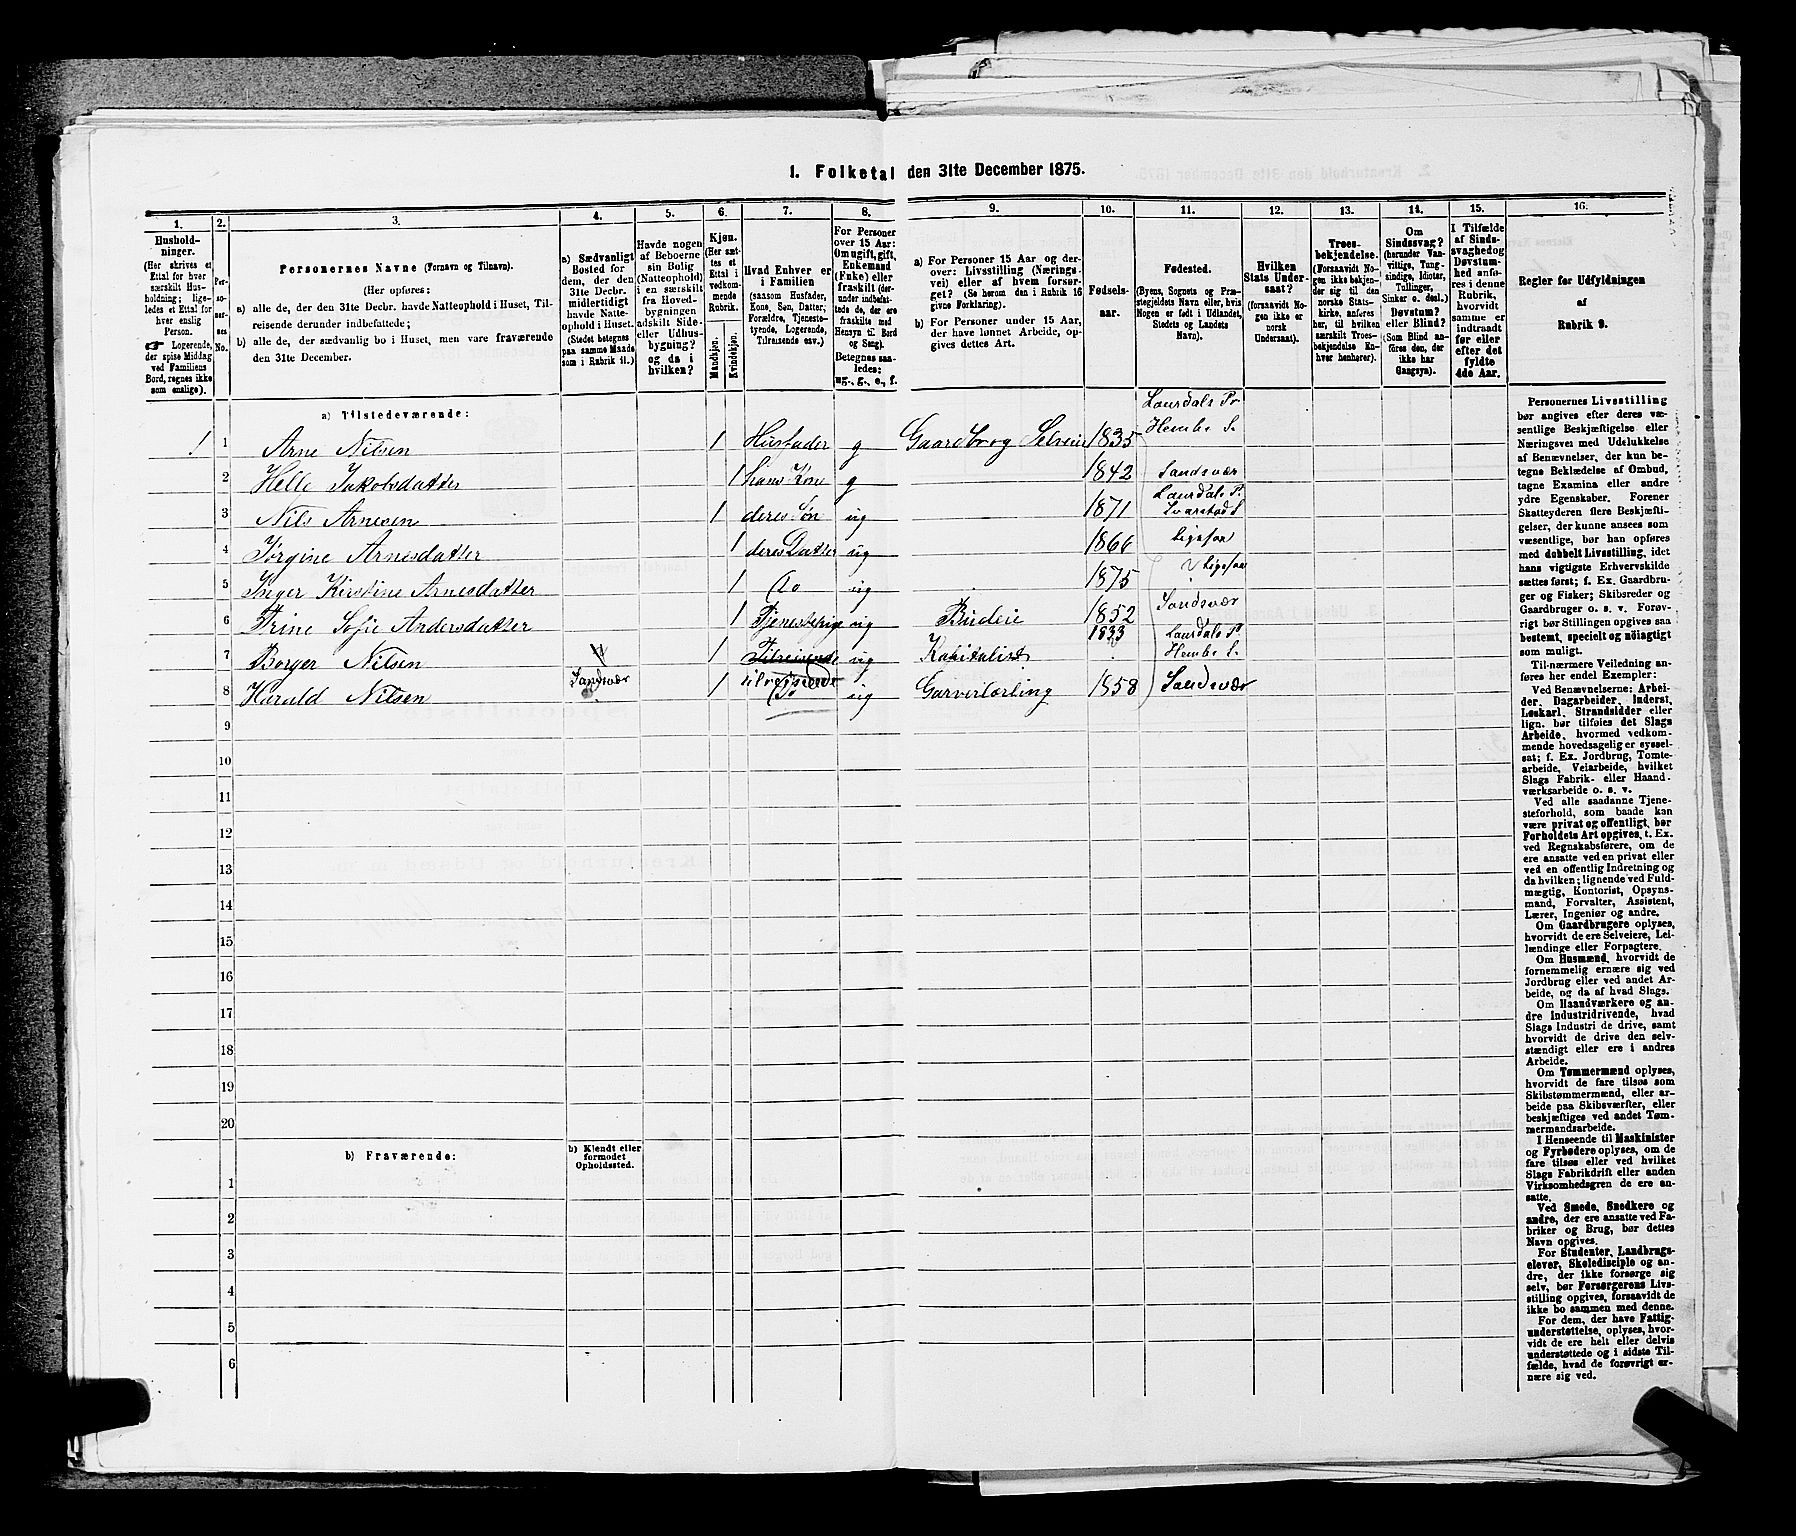 1. Folketal den 31te December 1875.
1. 2. 3. 4. 5. 6. 7. 8. 9. 10. 11. 12. 13. 14. 15. 16.
Hushold-
ninger.
(Her skrives et
Ettal for hver
særskilt Hus-
holdning; lige-
ledes et Ettal for
hver enslig
Person.
☛ Logerende,
der spise Middag
ved Familiens
Bord, regnes ikke
som enslige).
Per-
so-
ner-
nes
No.
Personernes Navne (Fornavn og Tilnavn).
(Her opføres:
a) alle de, der den 31te Decbr. havde Natteophold i Huset, Til-
reisende derunder indbefattede;
b) alle de, der sædvanlig bo i Huset, men vare fraværende
den 31te December.
a) Sædvanligt
Bosted for
dem, der den
31te Decbr.
midlertidigt
havde Natte-
ophold i Huset.
(Stedet betegnes
paa samme Maade
som i Rubrik 11.)
Havde nogen
af Beboerne
sin Bolig
(Natteophold)
i en særskilt
fra Hoved-
bygningen
adskilt Side-
eller Udhus-
bygning?
og da i
hvilken?
Kjøn.
(Her sæt-
tes et
Ettal i
vedkom-
mende
Rubrik.
Mandkjøn.
Kvindekjøn.
Hvad Enhver er
i Familien
(saasom Husfader,
Kone, Søn, Datter,
Forældre, Tjeneste-
tyende, Logerende,
Tilreisende osv.)
For Personer
over 15 Aar:
Om ugift, gift,
Enkemand
(Enke) eller
fraskilt (der-
under indbefat-
tede de, der ere
fraskilte med
Hensyn til Bord
og Seng).
Betegnes saa-
ledes:
ug., g., e., f.
a) For Personer 15 Aar og der-
over: Livsstilling (Nærings-
vei) eller af hvem forsør-
get? (Se herom den i Rubrik 16
givne Forklaring).
b) For Personer under 15 Aar,
der have lønnet Arbeide, op-
gives dettes Art.
Fødsels-
aar.
Fødested.
(Byens, Sognets og Præ-
stegjeldets Navn eller, hvis
Nogen er født i Udlandet,
Stedets og Landets
Navn).
Hvilken
Stats Under-
saat?
(forsaavidt No-
gen ikke er
norsk
Undersaat).
Troes-
bekjendelse.
(Forsaavidt No-
gen ikke bekjen-
der sig til den
norske Stats-
kirke, anføres
her, til hvilken
særskilt Troes-
bekjendelse En-
hver henhører).
Om
Sindssvag?
(herunder Van-
vittige, Tung-
sindige, Idioter,
Tullinger,
Sinker o. desl.)
Døvstum?
eller Blind?
(Som Blind an-
føres den, der
ikke har
Gangsyn).
I Tilfælde
af Sinds-
svaghed og
Døvstum-
hed anfø-
res i denne
Rubrik,
hvorvidt
samme er
indtraadt
før eller
efter det
fyldte
4de Aar.
Regler for Udfyldningen
af
Rubrik 9.
a) Tilstedeværende:
1 1 Arne Nilsen 1 Husfader g Gaardbrug Selveier 1835 Laurdals Pr Hembe S.
2 Helle Jakobsdatter 1 hans Kone g 1842 Sandsvær
3 Nils Arnesen 1 deres Søn ug 1871 Laurdals P. Svarstad S
4 Jørgine Arnesdatter 1 deres Datter ug 1866 ligesaa
5 Inger Kirstine Arnesdatter 1 Do ug 1875 ligesaa
6 Trine Sofie Andersdatter 1 Tjenestepige ug Budeie 1852 Sandsvær
7 Borger Nilsen 1 Tilreisende ug Kapitalist 1833 Laurdals P Hembe S.
8 Harald Nilsen Sandsvær 1 tilreisende Do ug Garverlærling 1858 Sandsvær
9
10
11
12
13
14
15
16
17
18
19
20
b) Fraværende:
b) Kjendt eller
formodet
Opholdssted.
1
2
3
4
5
6
Personernes Livsstilling
bør angives efter deres væ-
sentlige Beskjæftigelse eller
Næringsvei med Udelukkelse
af Benævnelser, der kun be-
tegne Beklædelse af Ombud,
tagne Examina eller andre
ydre Egenskaber. Forener
Skatteyderen flere Beskjæfti-
gelser, der kunne ansees som
væsentlige, bør han opføres
med dobbelt Livsstilling, idet
hans vigtigste Erhvervskilde
sættes først; f. Ex. Gaardbru-
ger og Fisker; Skibsreder og
Gaardbruger o. s. v. Forøv-
rigt bør Stillingen opgives saa
bestemt, specielt og nøiagtigt
som muligt.
Til nærmere Veiledning an-
føres her endel Exempler:
Ved Benævnelserne: Arbei-
der, Dagarbeider, Inderst,
Løskarl, Strandsidder eller
lign. bør tilføies det Slags
Arbeide, hvormed vedkom-
mende hovedsagelig er syssel-
sat; f. Ex. Jordbrug, Tomte-
arbeide, Veiarbeide, hvilket
Slags Fabrik- eller Haand-
værksarbeide o. s. v.
Ved alle saadanne Tjene-
steforhold, som baade kan
være privat og offentligt, bør
Forholdets Art opgives, t. Ex.
ved Regnskabsførere, om de
ere ansatte ved en privat eller
ved en offentlig Indretning og
da hvilken; lignende ved Fuld-
mægtig, Kontorist, Opsyns-
mand, Forvalter, Assistent,
Lærer, Ingeniør og andre.
Om Gaardbrugere oplyses,
hvorvidt de ere Selveiere, Lei-
lændinge eller Forpagtere.
Om Husmænd, hvorvidt de
fornemmelig ernære sig ved
Jordbrug eller ved andet Ar-
beide, og da af hvad Slags.
Om Haandværkere og an-
dre Industridrivende, hvad
Slags Industri de drive, samt
hvorvidt de drive den selv-
stændigt eller ere i andres
Arbeide.
Om Tømmermænd oplyses,
hvorvidt de fare tilsøs som
Skibstømmermænd, eller ar-
beide paa Skibsværfter, eller
beskjæftiges ved andet Tøm-
mermandsarbeide.
I Henseende til Maskinister
og Fyrbødere oplyses, om de
fare tilsøs eller ved hvilket
Slags Fabrikdrift eller anden
Virksomhedsgren de ere an-
satte.
Ved Smede, Snedkere og
andre, der ere ansatte ved Fa-
briker og Brug, bør dettes
Navn opgives.
For Studenter, Landbrugs-
elever, Skoledisciple og an-
dre, der ikke forsørge sig
selv, bør Forsørgerens Livs-
stilling opgives, forsaavidt de
ikke bo sammen med denne.
For dem, der have Fattig-
understøttelse, oplyses, hvor-
vidt de ere helt eller delvis
understøttede og i sidste Til-
fælde, hvad de forøvrigt er-
nære sig ved.